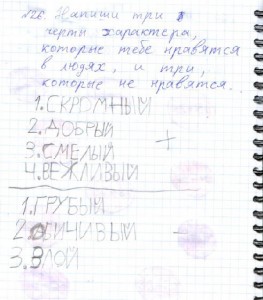 126. Напиши три
черты характера,
которые тебе нравятся
в людях, и три,
которые не нравятся.
1.СКРОМНЫЙ
2.ДОБРЫЙ
+
3.СМЕЛЫЙ
4.ВЕЖЛИВЫЙ
1.ГРУБЫЙ
2.ОБИЧИВЫЙ -
3.ЗЛОЙ